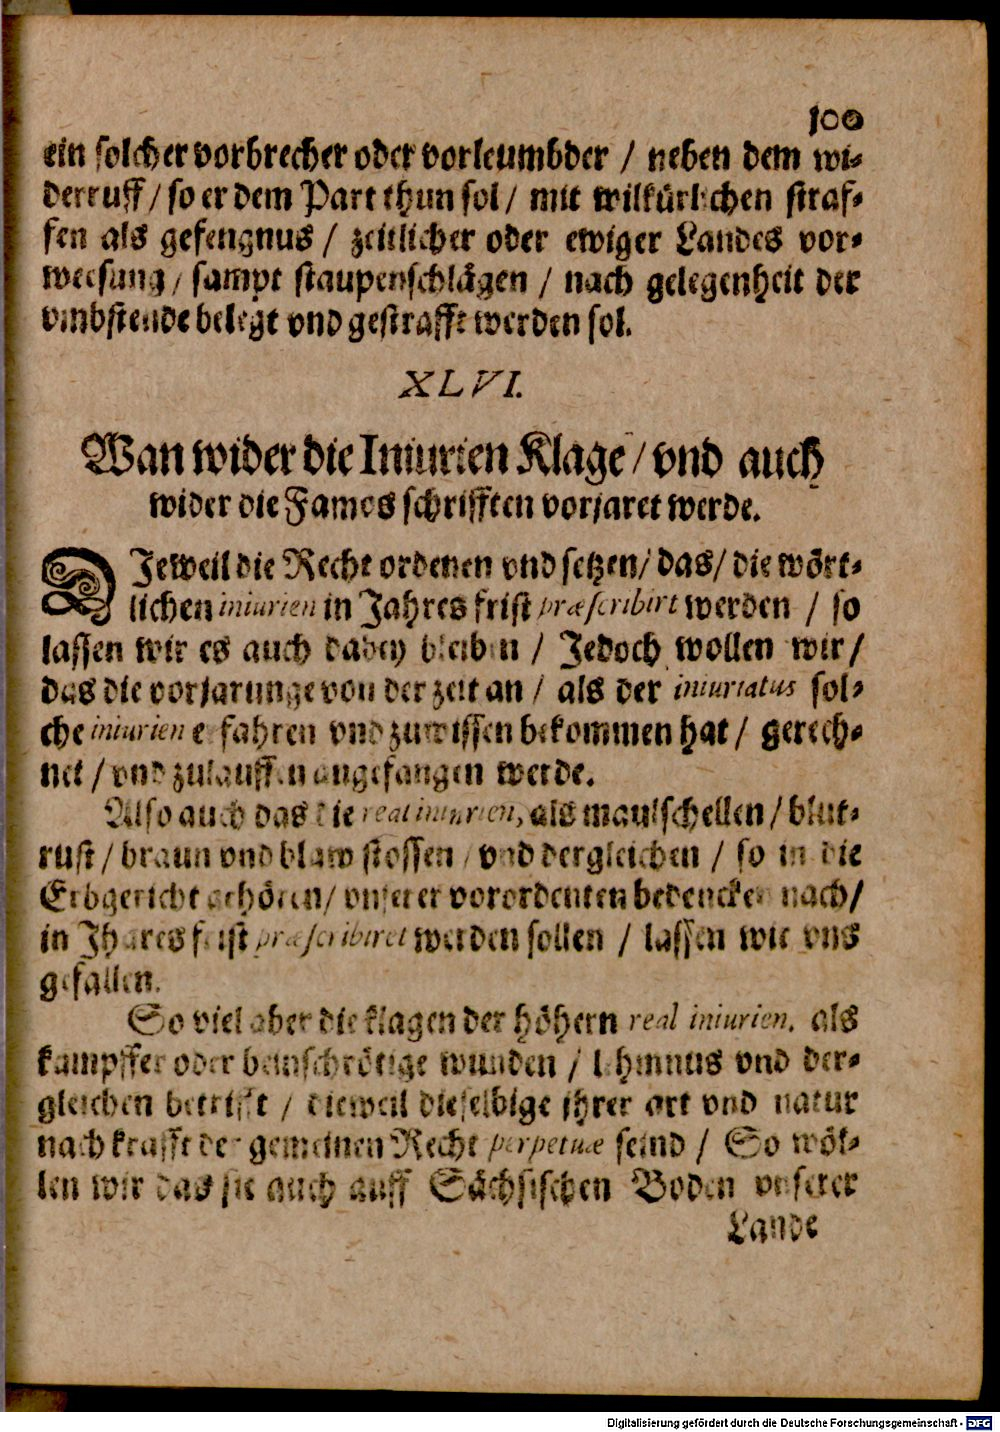 100
ein solcher vorbrecher oder vorleumbder / neben dem wi-
derruff / so er dem Part thun sol / mit wilkürlichen straf-
fen als gefengnus / zeitlicher oder ewiger Landes vor-
weesung / sampt staupenschlägen / nach gelegenheit der
vmbstende belegt vnd gestrafft werden sol.
XLVI.
Wan wider die Iniurien Klage / vnd auch
wider die Famos schrifften vorjaret werde.
DJeweil die Recht ordenen vnd setzen / das / die wört-
lichen iniurien in Jahres frist præscribirt werden / so
lassen wir es auch dabey bleiben / Jedoch wollen wir /
das die vorjarunge von der zeit an / als der iniuriatus sol-
che iniurien erfahren vnd zuwissen bekommen hat / gerech-
net / vnd zulauffen angefangen werde.
Also auch das die real iniurien, als maulschellen / blut-
rust / braun vnd blaw stossen / vnd dergleichen / so in die
Erbgericht gehören / vnserer vorordenten bedencken nach /
in Jhares frist præscribiret werden sollen / lassen wir vns
gefallen.
So viel aber die klagen der höhern real iniurien. als
kampffer oder beinschrötige wunden / lehmnus vnd der-
gleichen betrifft / dieweil dieselbige jhrer art vnd natur
nach krafft der gemeinen Recht perpetuæ seind / So wöl-
len wir das sie auch auff Sächsischen Boden vnserer
Lande
Digitalisierung gefördert durch die Deutsche Forschungsgemeinschaft - DFG